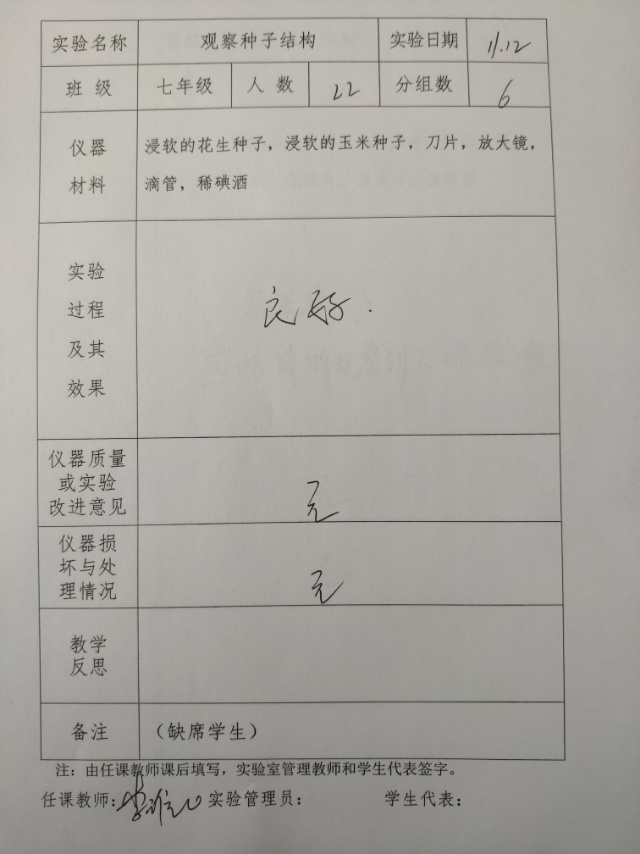 实验名称 观察种子结构 实验日期 11.12
班 级 七年级 人 数 22 分组数 6
仪器
材料
浸软的花生种子，浸软的玉米种子，刀片，放大镜，
滴管，稀碘酒
实验
过程
及其
效果
良好.
仪器质量
或实验
改进意见
无
仪器损
坏与处
理情况
无
教学
反思
备注 （缺席学生）
注：由任课教师课后填写，实验室管理教师和学生代表签字。
任课教师： 实验管理员： 学生代表：